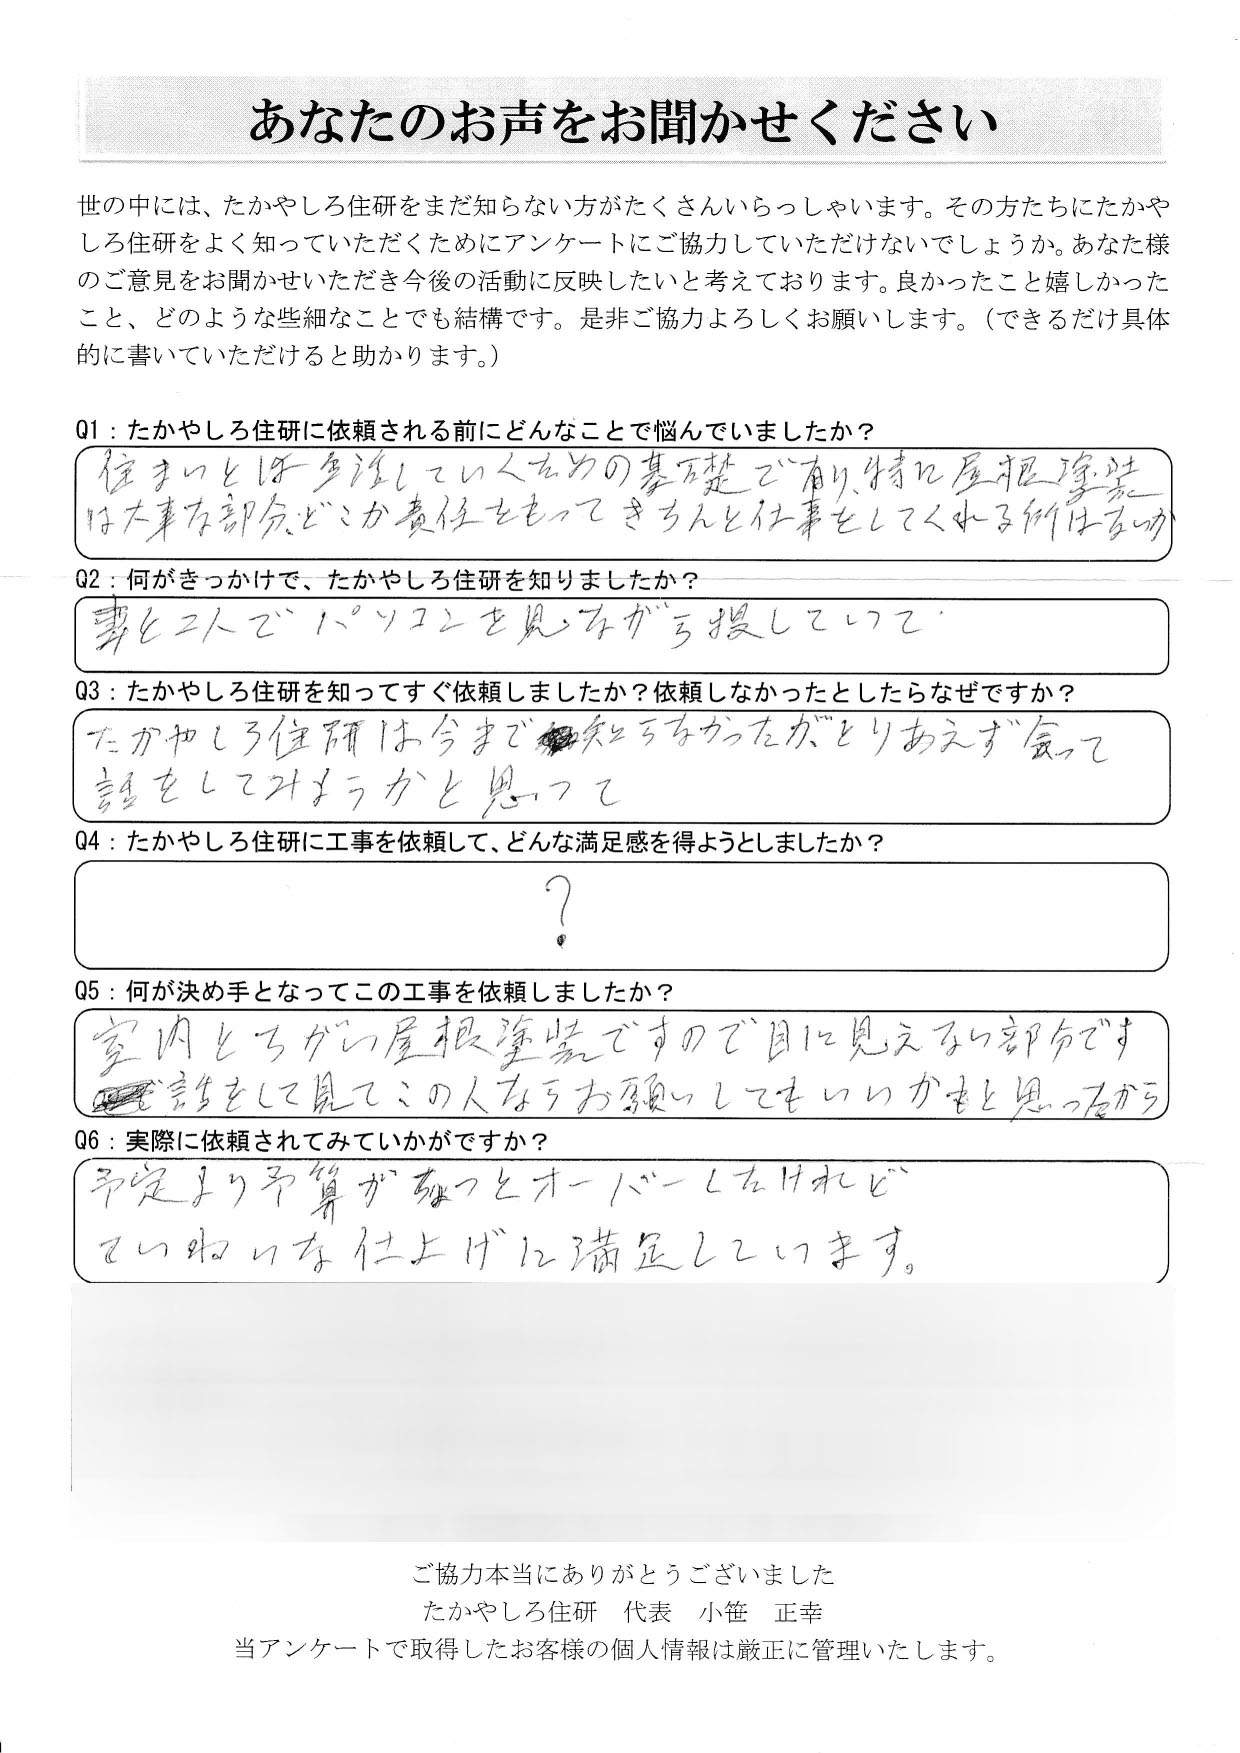 あなたのお声をお聞かせください
世の中には、たかやしろ住研をまだ知らない方がたくさんいらっしゃいます。その方たちにたかや
しろ住研をよく知っていただくためにアンケートにご協力していただけないでしょうか。あなた様
のご意見をお聞かせいただき今後の活動に反映したいと考えております。良かったこと嬉しかった
こと、どのような些細なことでも結構です。是非ご協力よろしくお願いします。（できるだけ具体
的に書いていただけると助かります。）
Q1：たかやしろ住研に依頼される前にどんなことで悩んでいましたか？
住まいとは生活していくための基礎で有り、特に屋根塗装
は大事な部分、どこか責任をもってきちんと仕事をしてくれる所はないか
Q2：何がきっかけで、たかやしろ住研を知りましたか？
妻と二人でパソコンを見ながら捜していって
Q3：たかやしろ住研を知ってすぐ依頼しましたか？依頼しなかったとしたらなぜですか？
たかやしろ住研は今まで知らなかったが、とりあえず会って
話をしてみようかと思って
Q4：たかやしろ住研に工事を依頼して、どんな満足感を得ようとしましたか？
？
Q5：何が決め手となってこの工事を依頼しましたか？
室内とちがい屋根塗装ですので目に見えない部分です
話をして見てこの人ならお願いしてもいいかもと思ったから
Q6：実際に依頼されてみていかがですか？
予定より予算がちょっとオーバーしたけれど
ていねいな仕上げに満足しています。
ご協力本当にありがとうございました
たかやしろ住研　代表　小笹　正幸
当アンケートで取得したお客様の個人情報は厳正に管理いたします。